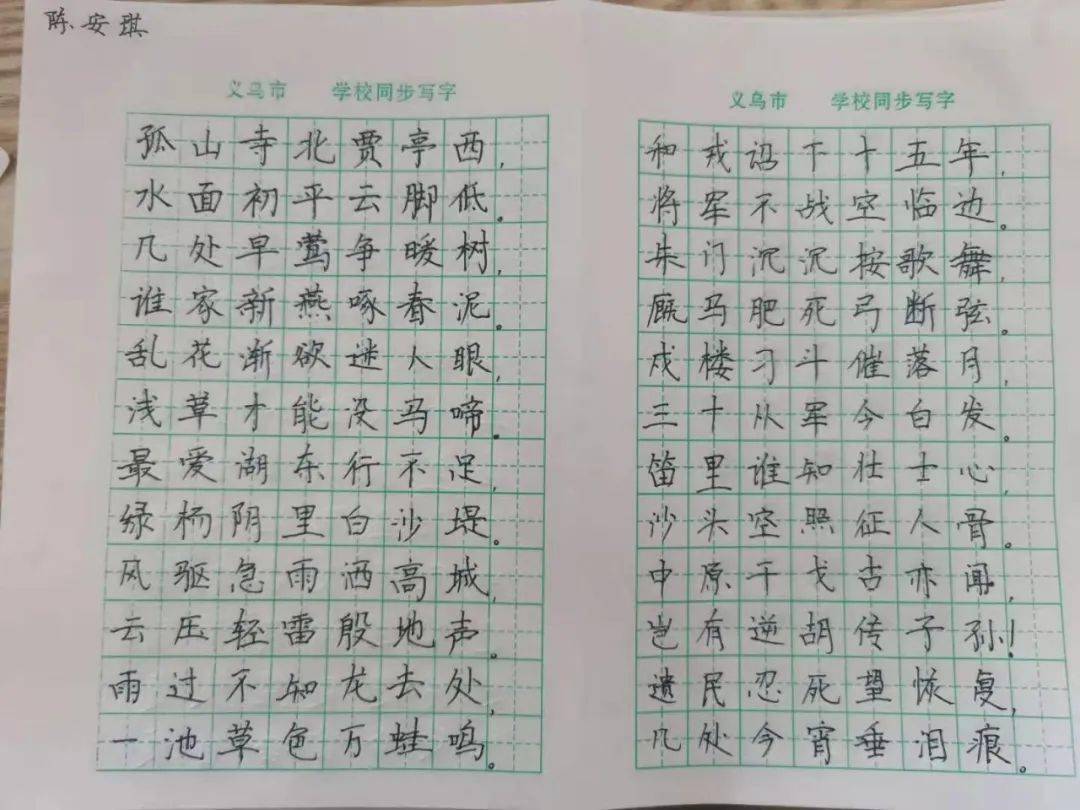 陈安琪
义乌市 学校同步写字
孤山寺北贾亭西,
水面初平云脚低。
几处早莺争暖树,
谁家新燕啄春泥。
乱花渐欲迷人眼,
浅草才能没马啼。
最爱湖东行不足,
绿杨阴里白沙堤。
风驱急雨洒高城,
云压轻雷殷地声。
雨过不知龙去处,
一池草色万蛙鸣。
义乌市 学校同步写字
和戎诏下十五年,
将军不战空临边。
朱门沉沉按歌舞,
厩马肥死弓断弦。
戍楼刁斗催落月,
三十从军今白发。
笛里谁知壮士心,
沙头空照征人骨。
中原干戈古亦闻,
岂有逆胡传子孙!
遗民忍死望恢复,
几处今宵垂泪痕。